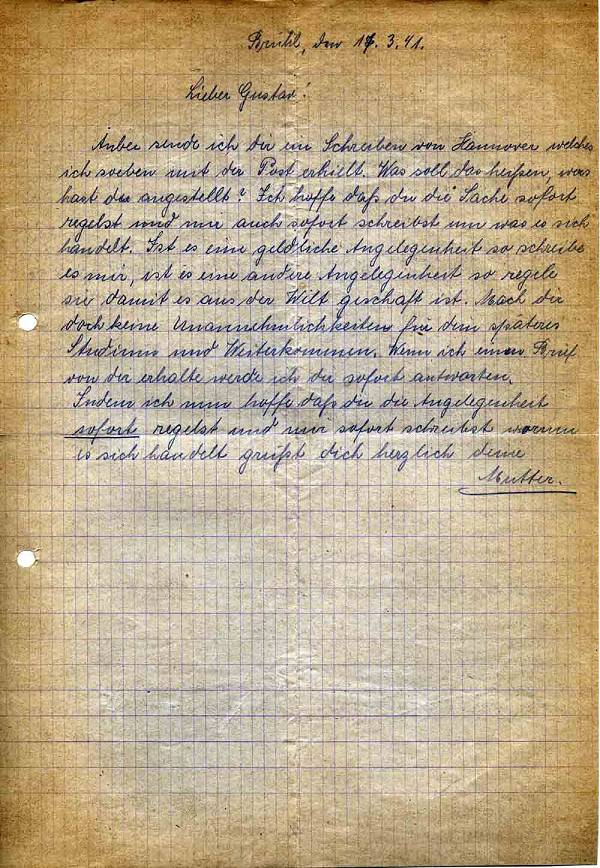 Brutil, den 17.3.41.
Lieber Gustav!
Anbei sende ich dir ein Schreiben von Hannover welches
ich soeben mit der Post erhielt. Was soll das heißen, was
hast du angestellt? Ich hoffe daß du die Sache sofort
regelst und mir auch sofort schreibst um was es sich
handelt. Ist es eine geldliche Angelegenheit so schreibe
es mir, ist es eine andere Angelegenheit so regele
sie damit es aus der Wilt geschaft ist. Mach dir
doch keine Unannehmlichkeiten für dem späteres
Studium und Weiterkommen. Wenn ich einen Brief
von dir erhalte werde ich dir sofort antworten.
Indem ich nun hoffe daß du die Angelegenheit
sofort regelst und mir sofort schreibst worum
es sich handelt grüßt dich herzlich deine
Mutter.